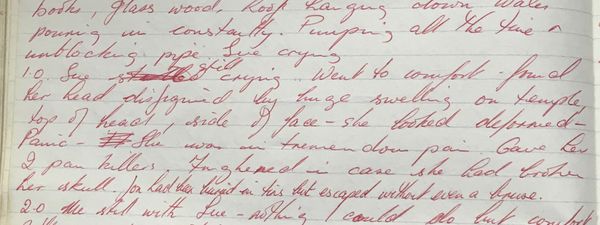 books, glass wood, roof hanging down water
pouring in constantly. Pumping all the time &
unblocking pipe. Sue crying
1.0. Sue still crying. Went to comfort - found
her head disfigured by huge swelling on temple,
top of head, side of face - she looked deformed -
Panic - She was in tremendous pain Gave her
2 pain killers. In case she had broken
her skull. Jon had been in this but escaped without even a bruise.
2.0 Me still with Sue - nothing I could do but comfort